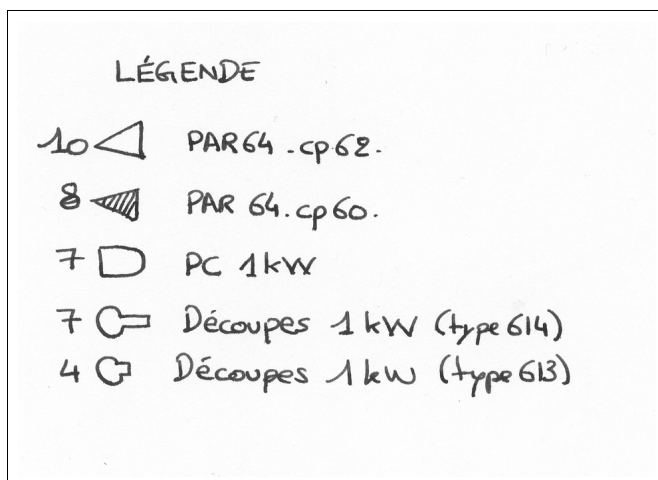 LÉGENDE
10 PAR64 - cp62.
8 PAR 64. cp60.
7 PC 1kW
7 Découpes 1kW (type 614)
4 Découpes 1kW (type 613)